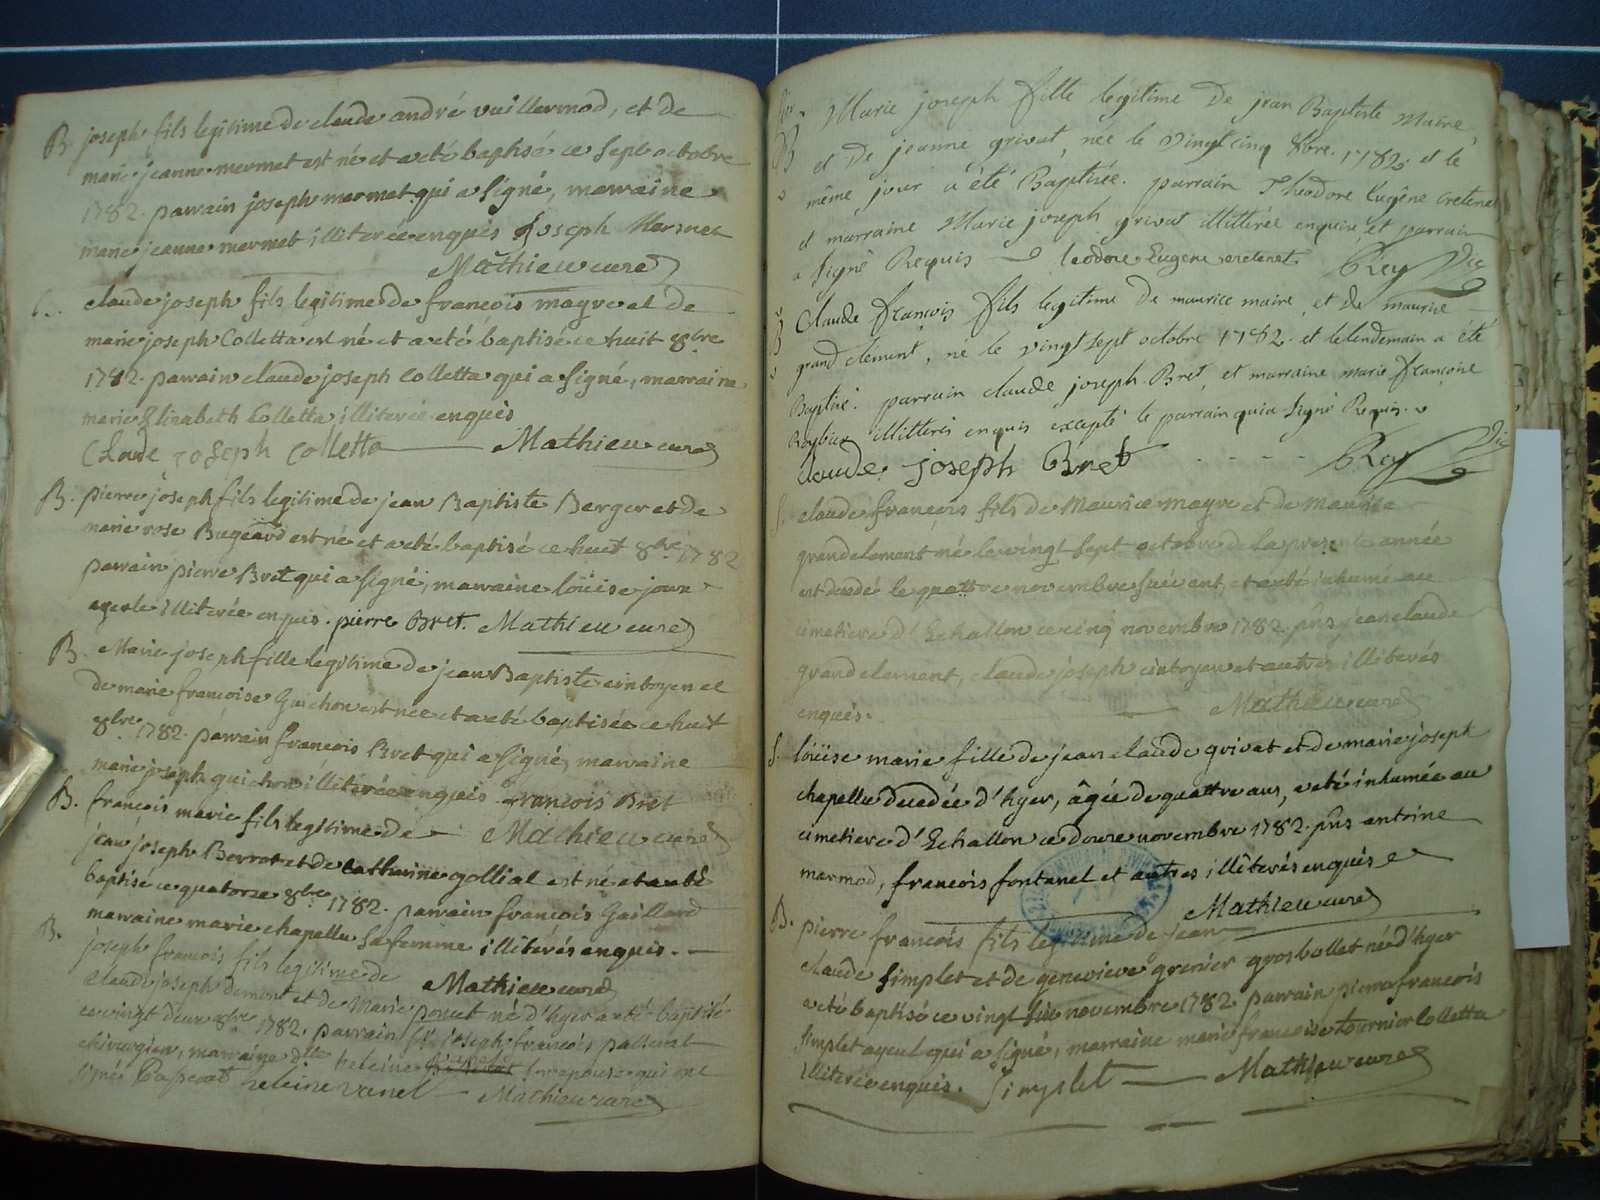 B. joseph fils legitime de claude andré vuillermod, et de
marie jeanne mermet est né et a eté baptisé ce sept octobre
1782. parrain joseph mermet qui a signé, marraine
marie jeanne mermet illiterée enquis Joseph Mermet
Mathieu curé
claude joseph fils legitime de françois mayre et de
marie joseph Colletta est né et a eté baptisé ce huit 8bre
1782. parrain claude joseph Colletta qui a signé, marraine
marie Elizabeth Colletta illiterée enquis
Claude joseph Colletta Mathieu curé
B. pierre joseph fils legitime de jean Baptiste Berger et de
marie rose Bugeaud est né et a eté baptisé ce huit 8bre 1782
parrain pierre Bret qui a signé, marraine loüise
illiterée enquis. pierre Bret. Mathieu curé
B. Marie joseph fille legitime de jean Baptiste cintoyen et
de marie francoise Guichon est née et a eté baptisée ce huit
8bre 1782. parrain francois Bret qui a signé, marraine
marie joseph guichon illiterée enquis francois Bret
B. francois marie fils legitime de Mathieu curé
jean joseph Berrot et de Catherine golliat est né et a eté
baptisé ce quatorze 8bre 1782. parrain francois Gaillard
marraine marie chapellu sa femme illiterés enquis.
B. joseph francois fils legitime de Mathieu curé
claude joseph dumont et de Marie poncet né d'hyer a eté baptisé
ce vingt deux 8bre 1782. parrain joseph francois passerat
chirurgien, marraine dlle heleine son epouse qui ont
signés Passerat heleine vanel Mathieu curé
B Marie joseph fille legitime De jean Baptiste Maire,
et De jeanne grivat, née le vingt cinq 8bre. 1782. et le
même jour a été Baptisée. parrain Theodore Eugêne cretenet
et marraine Marie joseph grivat illitérée enquise, et parrain
a signé Requis teodore Eugene cretenet Rey Vic
B Claude françois fils legitime De maurice maire, et De maurise
grand clement, né le vingt sept octobre 1782. et le lendemain a été
Baptisé. parrain claude joseph Bret, et marraine marie françoise
illitterés enquis excepté le parrain qui a signé Requis.
claude joseph Bret Rey Vic
S. claude françois fils de Maurice mayre et de Maurise
grandclement né le vingt sept octobre de la presente année
est decedé le quattre novembre suivant, et a eté inhumé au
cimetiere d'Echallon ce cinq novembre 1782. pñs jean claude
grandclement, claude joseph cintoyen et autres illiterés
enquis. Mathieu curé
S. loüise marie fille de jean claude grivat et de marie joseph
chapellu decedée d'hyer, âgée de quattre ans, a eté inhumée au
cimetiere d'Echallon ce douze novembre 1782. pñs antoine
marmod, francois fontanel et autres illiterés enquis
Mathieu curé
B. pierre francois fils legitime de jean
claude simplet et de genevieve grenier grosbollet né d'hyer
a eté baptisé ce vingt six novembre 1782. parrain pierre francois
simplet ayeul qui a signé, marraine marie francoise tournier Colletta
illiterée enquis. Simplet Mathieu curé